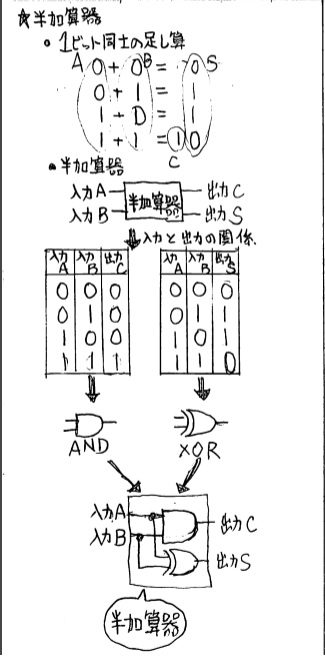 ☆半加算器
○ 1ビット同士の足し算
A 0 + 0 B = 0 S
0 + 1 = 1
1 + 0 = 1
1 + 1 = 1 0
C
● 半加算器
入力A 半加算器 出力C
入力B 出力S
入力と出力の関係.
入力A 入力B 出力C
0 0 0
0 1 0
1 0 0
1 1 1
入力A 入力B 出力S
0 0 0
0 1 1
1 0 1
1 1 0
AND XOR
入力A 出力C
入力B 出力S
半加算器